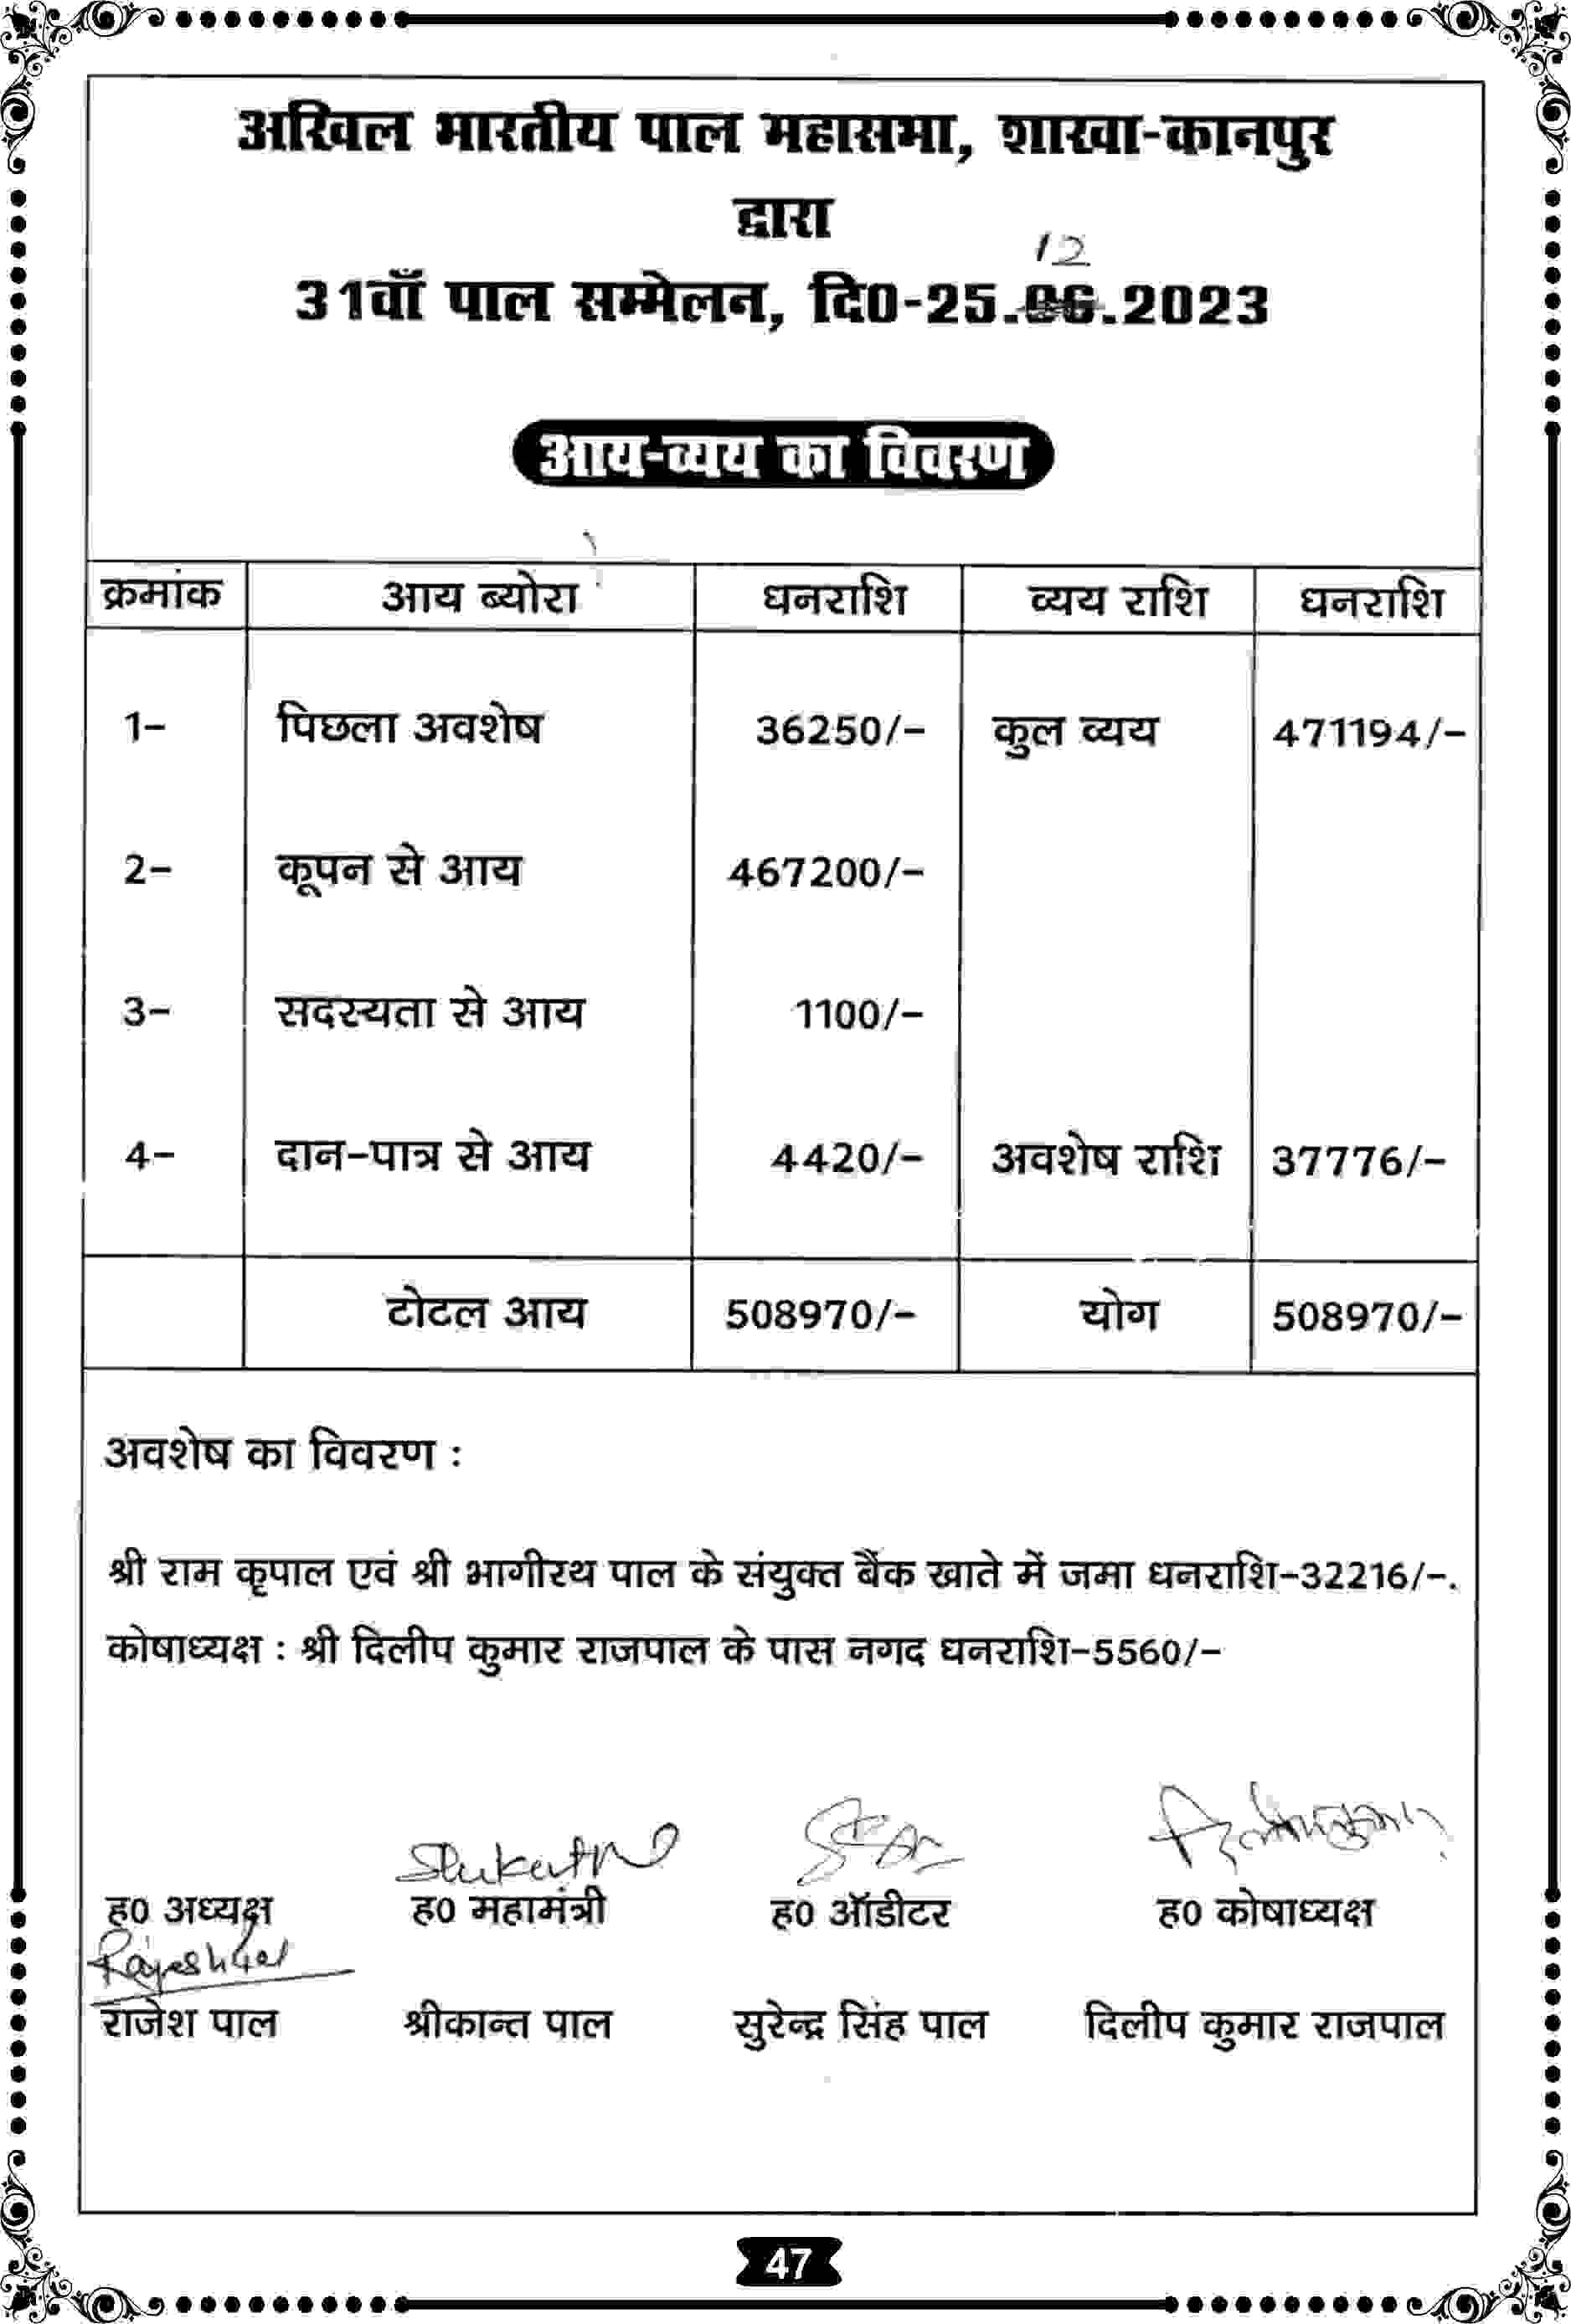 अखिल भारतीय पाल महासभा, शाखा-कानपुर
द्वारा
12
31वाँ पाल सम्मेलन, दि0-25.06.2023
आय-व्यय का विवरण
क्रमांक आय ब्योरा धनराशि व्यय राशि धनराशि
1- पिछला अवशेष 36250/- कुल व्यय 471194/-
2- कूपन से आय 467200/-
3- सदस्यता से आय 1100/-
4- दान-पात्र से आय 4420/- अवशेष राशि 37776/-
टोटल आय 508970/- योग 508970/-
अवशेष का विवरण :
श्री राम कृपाल एवं श्री भागीरथ पाल के संयुक्त बैंक खाते में जमा धनराशि-32216/-.
कोषाध्यक्ष : श्री दिलीप कुमार राजपाल के पास नगद धनराशि-5560/-
ह0 अध्यक्ष ह0 महामंत्री ह0 ऑडीटर ह0 कोषाध्यक्ष
राजेश पाल श्रीकान्त पाल सुरेन्द्र सिंह पाल दिलीप कुमार राजपाल
47